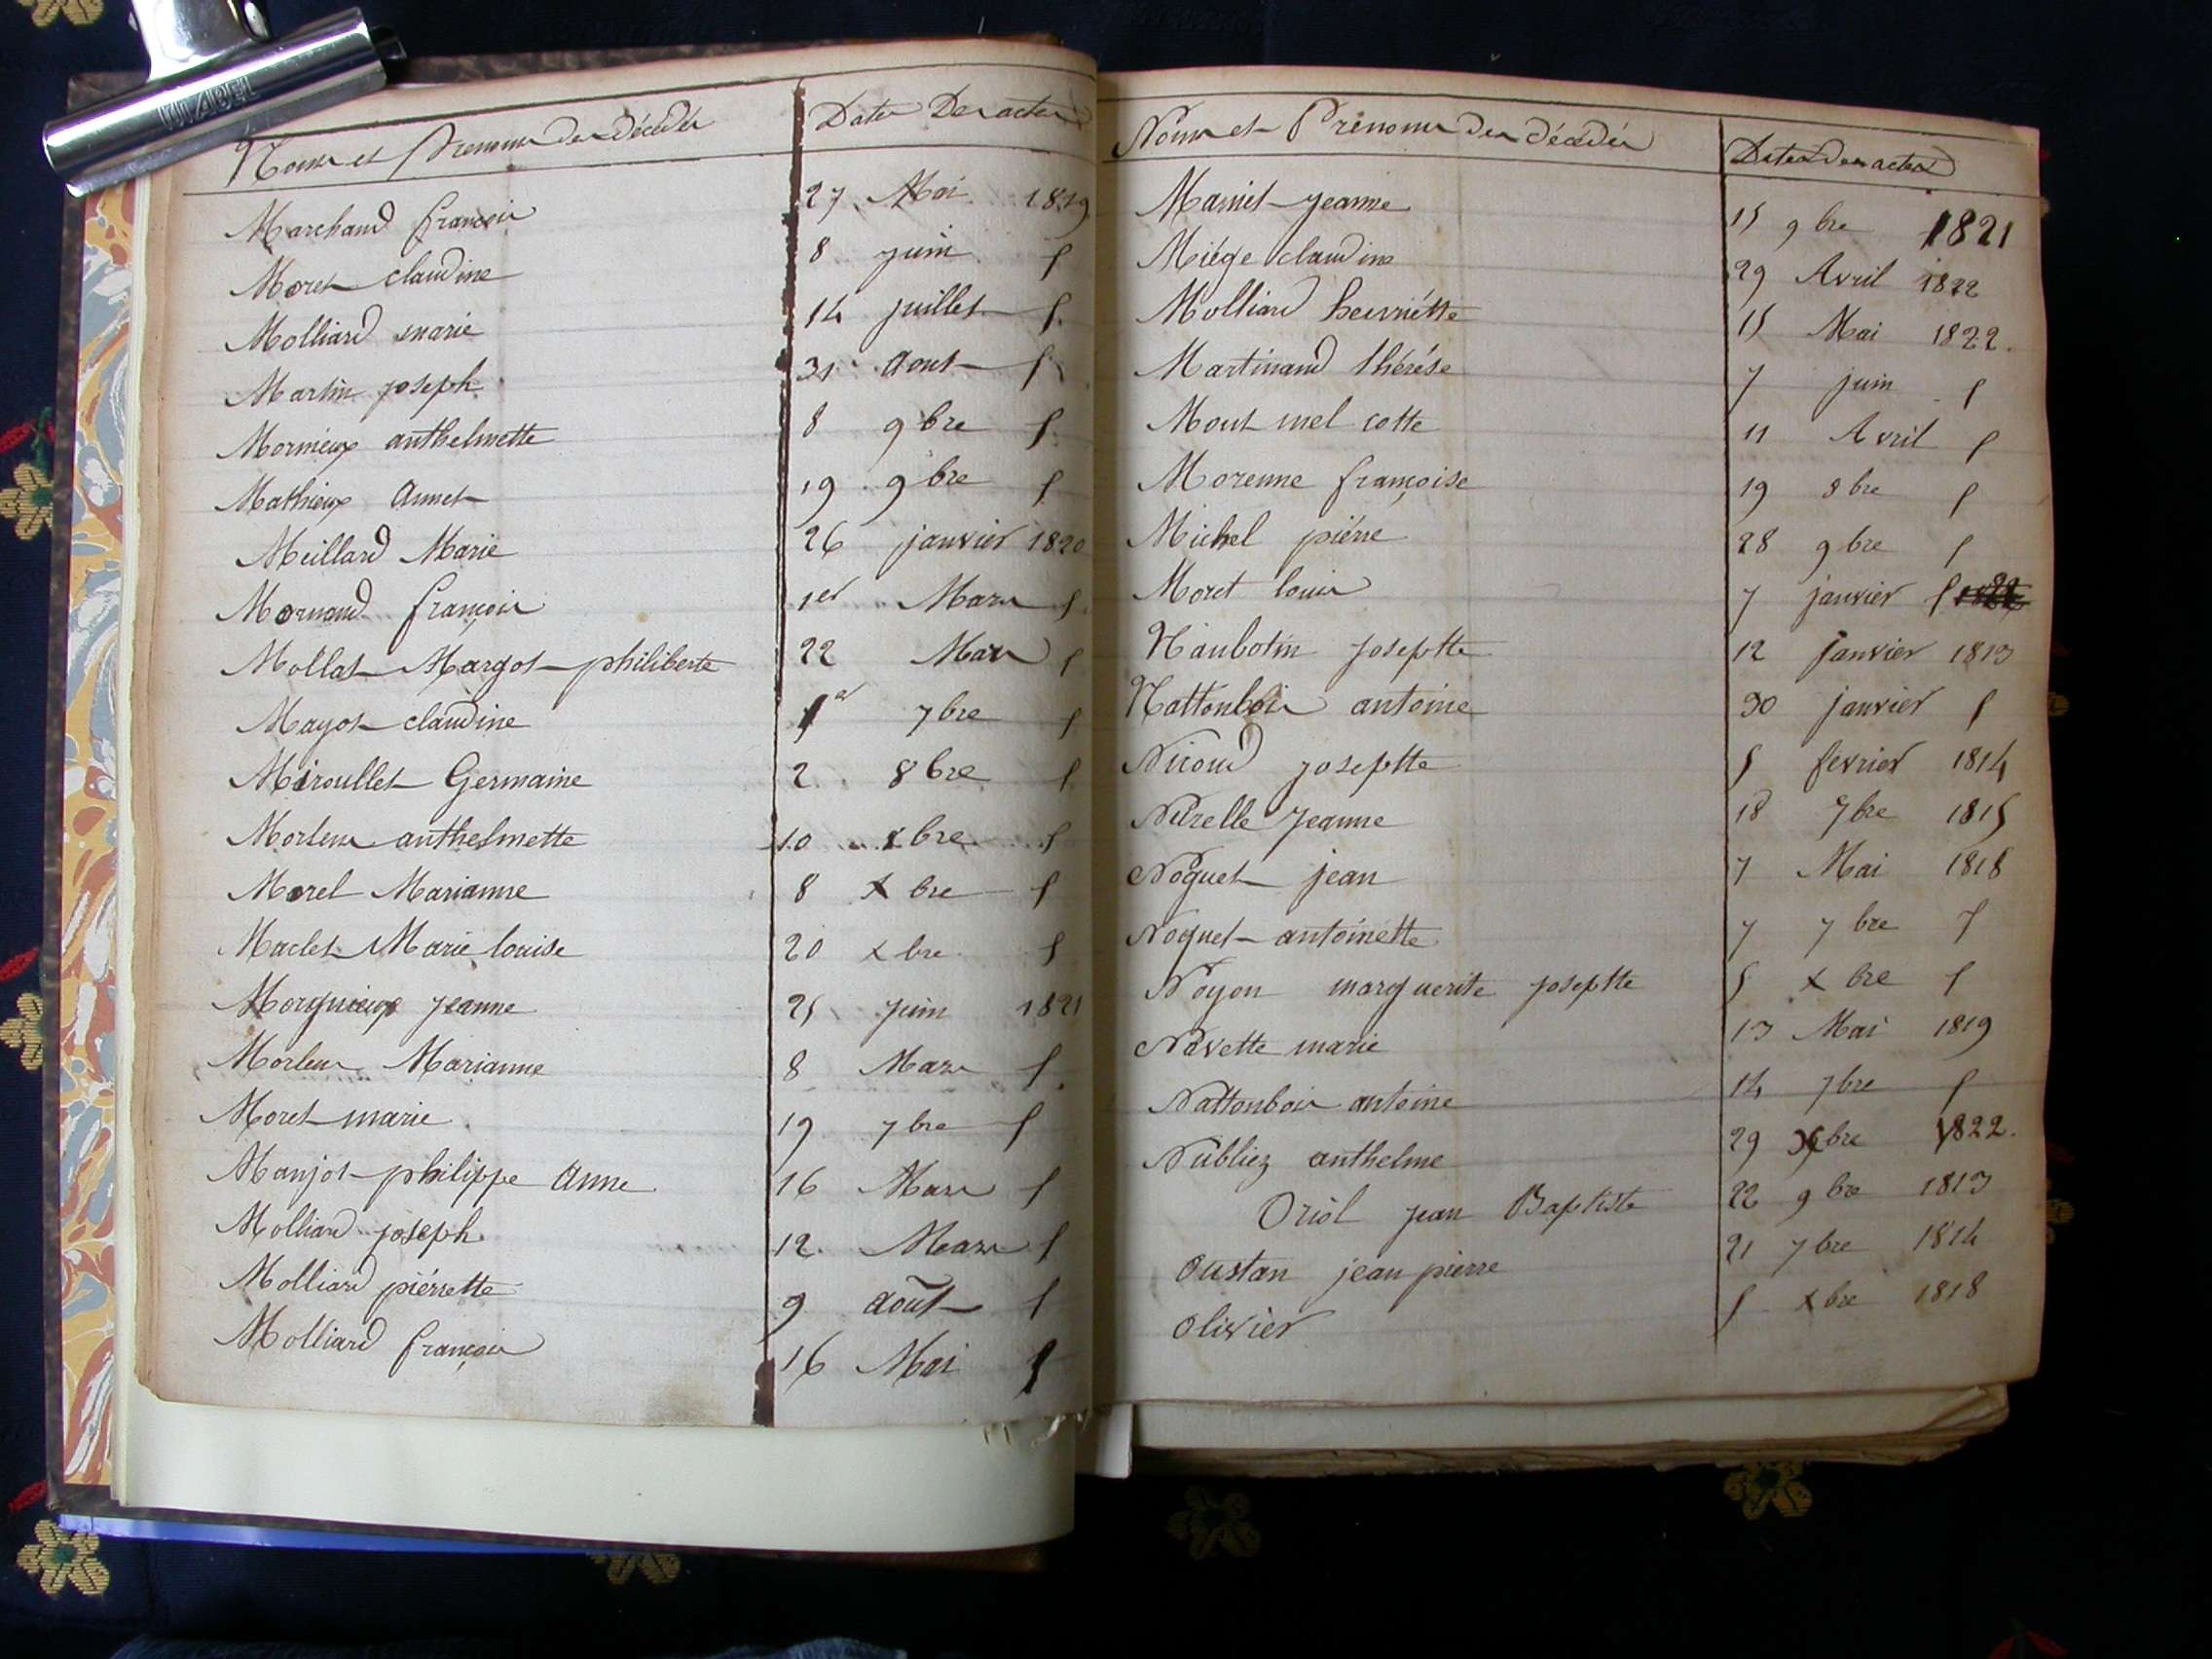 Noms et Prenoms des décédés Dates Des actes
Marchand françois 27 Mai 1819
Moret claudine 8 juin f
Molliard marie 14 juillet f
Martin joseph 31 Aout f
Mornieux anthelmette 8 9bre f
Mathieux Annet 19 9bre f
Meillard Marie 26 janvier 1820
Mornand françois 1er Mars f
Mollat Margot philiberte 22 Mars f
Mayot claudine 1er 7bre f
Miroullet Germaine 2 8bre f
Morlens anthelmette 10 xbre f
Morel Marianne 8 xbre f
Maclet Marie louise 20 xbre f
Morgnieux jeanne 25 juin 1821
Morlens Marianne 8 Mars f
Moret marie 19 7bre f
Manjot philippe Anne 16 Mars f
Molliard joseph 12 Mars f
Molliard piérrette 9 Août f
Molliard françois 16 Mai f
Noms et Prénoms des décédés Dates des actes
Mamet jeanne 15 9bre 1821
Miége claudine 29 Avril 1822
Molliard henriétte 15 Mai 1822.
Martinand thérése 7 juin f
Mont mel cotte 11 Avril f
Morenne françoise 19 8bre f
Michel piérre 28 9bre f
Moret louis 7 janvier f
Nanbotin josephte 12 janvier 1813
Nattonbois antoine 30 janvier f
Nicoud josephte 5 fevrier 1814
Nurelle jeanne 18 7bre 1815
Noguet jean 7 Mai 1818
Noguet antoinette 7 7bre f
Noyon marguerite josephte 5 xbre f
Navette marie 13 Mai 1819
Nattonbois antoine 14 7bre f
Nubliez anthelme 29 xbre 1822.
Oriol jean Baptiste 22 9bre 1813
Oustan jean pierre 21 7bre 1814
Olivier 5 xbre 1818